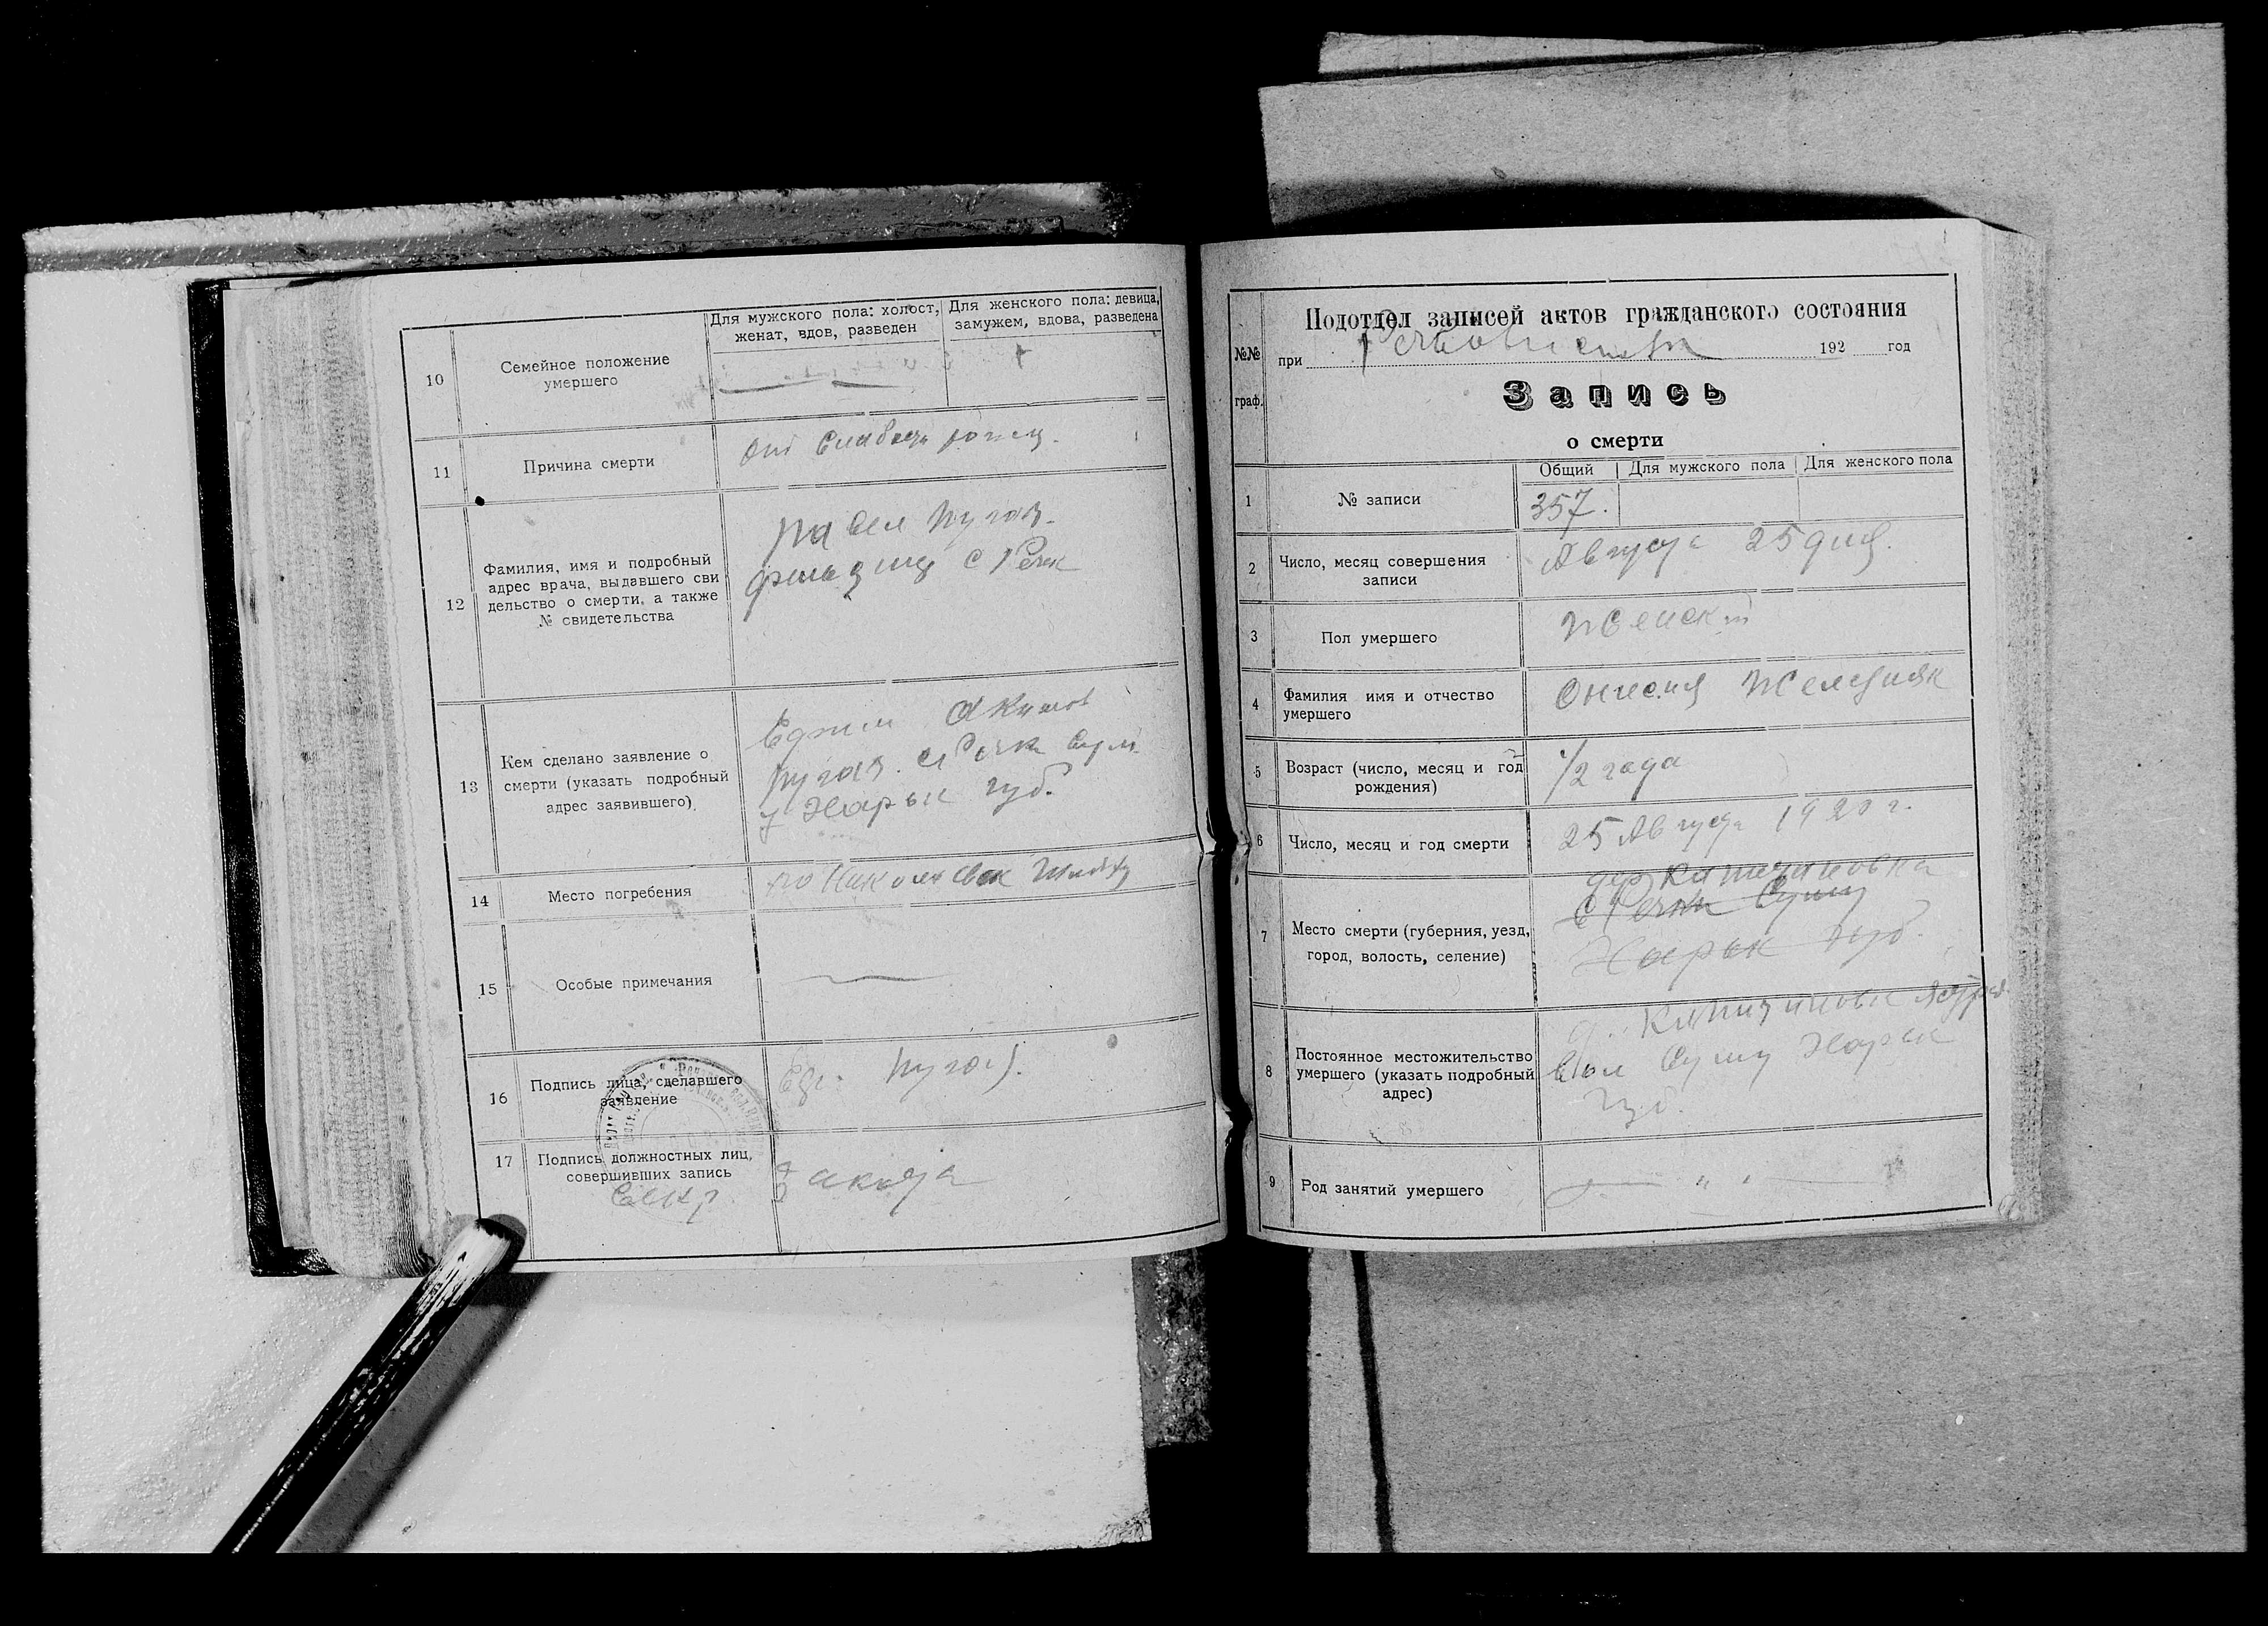 10
Семейное положение
умершего
Для мужского пола: холост,
женат, вдов, разведен
Для женского пола: девица,
замужем, вдова, разведена
+
11
Причина смерти
12
Фамилия, имя и подробный
адрес врача, выдавшего сви
дельство о смерти, а также
№ свидетельства
Павел Пугач
фельдшер с Речк
13
Кем сделано заявление о
смерти (указать подробный
адрес заявившего).
Ефим Акимов
Пугач. с Речк Сум
у Харьк губ.
14
Место погребения
по Николаевск
15
Особые примечания
16
Подпись лица, сделавшего
заявление
Пугач.
17
Подпись должностных лиц,
совершивших запись
Секр
№№
граф.
Подотдел записей актов гражданского состояния
при 192 год
Запись
о смерти
Общий
Для мужского пола
Для женского пола
1
№ записи
357.
2
Число, месяц совершения
записи
Августа 25 дня.
3
Пол умершего
Женский
4
Фамилия имя и отчество
умершего
Онисия Железняк
5
Возраст (число, месяц и год
рождения)
1/2 года
6
Число, месяц и год смерти
25 Августа 1920 г.
7
Место смерти (губерния, уезд,
город, волость, селение)
дер
С Речки Суму
Харьк губ.
8
Постоянное местожительство
умершего (указать подробный
адрес)
д.
Вол Суму Харьк
губ.
9
Род занятий умершего
— " " —